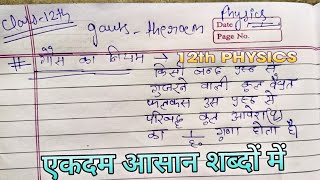 Class-12th
gauss-theorem
Physics
Date
Page No.
# गौस का नियम → 12th PHYSICS
किसी बन्द पृष्ठ से
गुजरने वाली कुल वैद्युत
फ्लक्स उस पृष्ठ से
परिबद्ध कुल आवेश
का 1/ε₀ गुणा होता है।
एकदम आसान शब्दों में